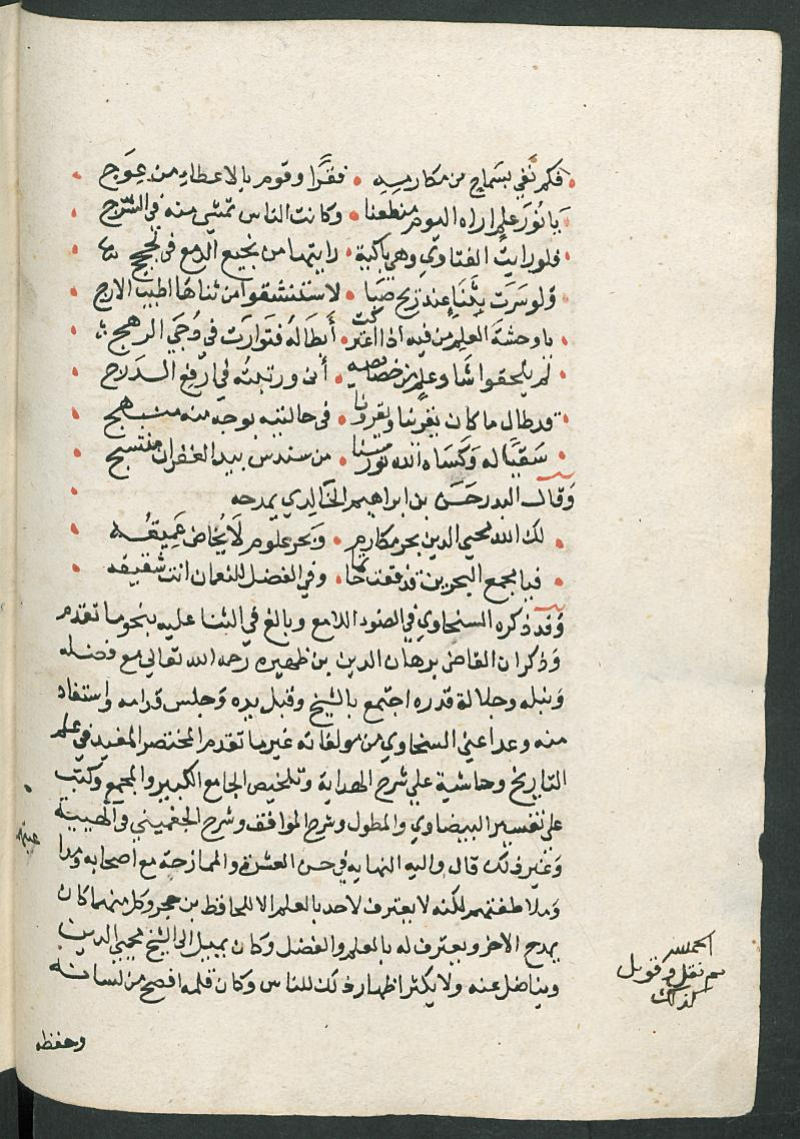 فكم نفى بسماح من مكارمه • فقرا وقوم بالاعطاء من عوج
يا نور علم اراه اليوم منطفئا • وكانت الناس تمشي منه في السُّرُج
فلو رايت الفتاوي وهي باكية • رايتها من نجيع الدمع في لجج
ولو سَرَت بثنا عند ريح صَبا • لاستنشقوا من ثناها اطيب الارج
يا وحشة العلم من فيه اذا اعتركت • أبطاله فتوارت في دُجَي الرهج
لم يلحقوا شاو علم من خصائصه • أنى ورتبته في ارفع الدرج
قد طال ما كان يقرينا ويقرؤنا • في حالتيه بوجه منه مبتهج
سَقيًا له وكساه الله نور سنا • من سندس بيد الغفران منتسج
وقال البدر حسن بن ابراهيم الخالدي يمدحه
لك الله محيي الدين بحر مكارم • وبحر علوم لا يُخاض عميقه
فيا مجمع البحرين قد فقت حاتما • وفي الفضل للنعمان انت شقيقه
وقد ذكره السخاوي في الضوء اللامع وبالغ في الثنا عليه بنحو ما تقدم
وذكر ان القاضي برهان الدين بن ظهيره رحمه الله تعالى مع فضله
ونبله وجلالة قدره اجتمع بالشيخ وقبل يده وجلس قدامه واستفاد
منه وعد اعني السخاوي من مولفاته غير ما تقدم المختصر المفيد في علم
التاريخ وحاشية علي شرح الهداية وتلخيص الجامع الكبير والمجمع وكتب
علي تفسير البيضاوي والمطول وشرح المواقف وشرح الجغميني في الهيية
وغير ذلك قال واليه النهايه في حسن العشرة والممازحة مع اصحابه
وملاطفتهم لكنه لا يعترف لاحد بالعلم الا للحافظ بن حجر وكل منهما كان
يمدح الاخر ويعترف له بالعلم والفضل وكان يميل الى الشيخ محيي الدين
ويناضل عنه ولا يكثر اظهار ذلك للناس وكان قلمه افصح من لسانه
وحفظه